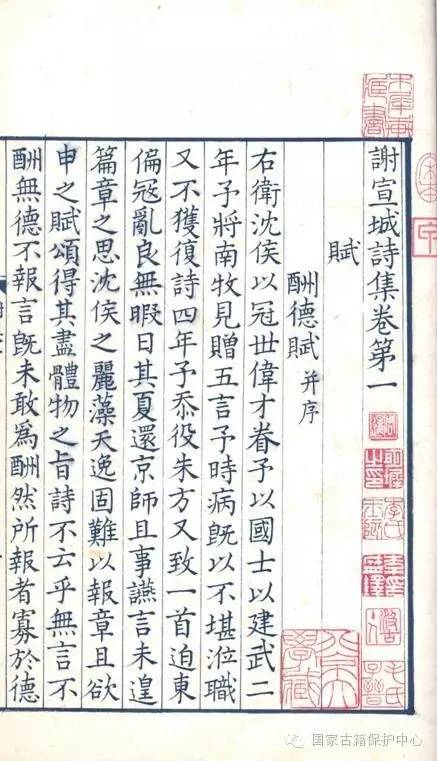 謝宣城詩集卷第一
賦
酬德賦 并序
右衛沈侯以冠世偉才眷予以國士以建武二
年予將南牧見贈五言予時病既以不堪涖職
又不獲復詩四年予忝役朱方又致一首迫東
偏寇亂良無暇日其夏還京師且事讌言未遑
篇章之思沈侯之麗藻天逸固難以報章且欲
申之賦頌得其盡體物之旨詩不云乎無言不
酬無德不報言既未敢為酬然所報者寡於德
国家古籍保护中心